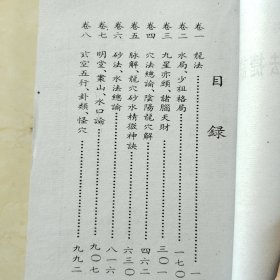 目錄
卷一 龍法……一
卷二 水局、少祖格局……一七〇
卷三 九星亦頭、諸腦天財……三〇一
卷四 穴法總論、陰陽龍穴解……四六二
卷五 脉解、龍穴砂水精微神訣……六三〇
卷六 砂法、水法總論……八一六
卷七 明堂、案山、水口論……九〇七
卷八 玄空五行、卦類怪穴……九九二